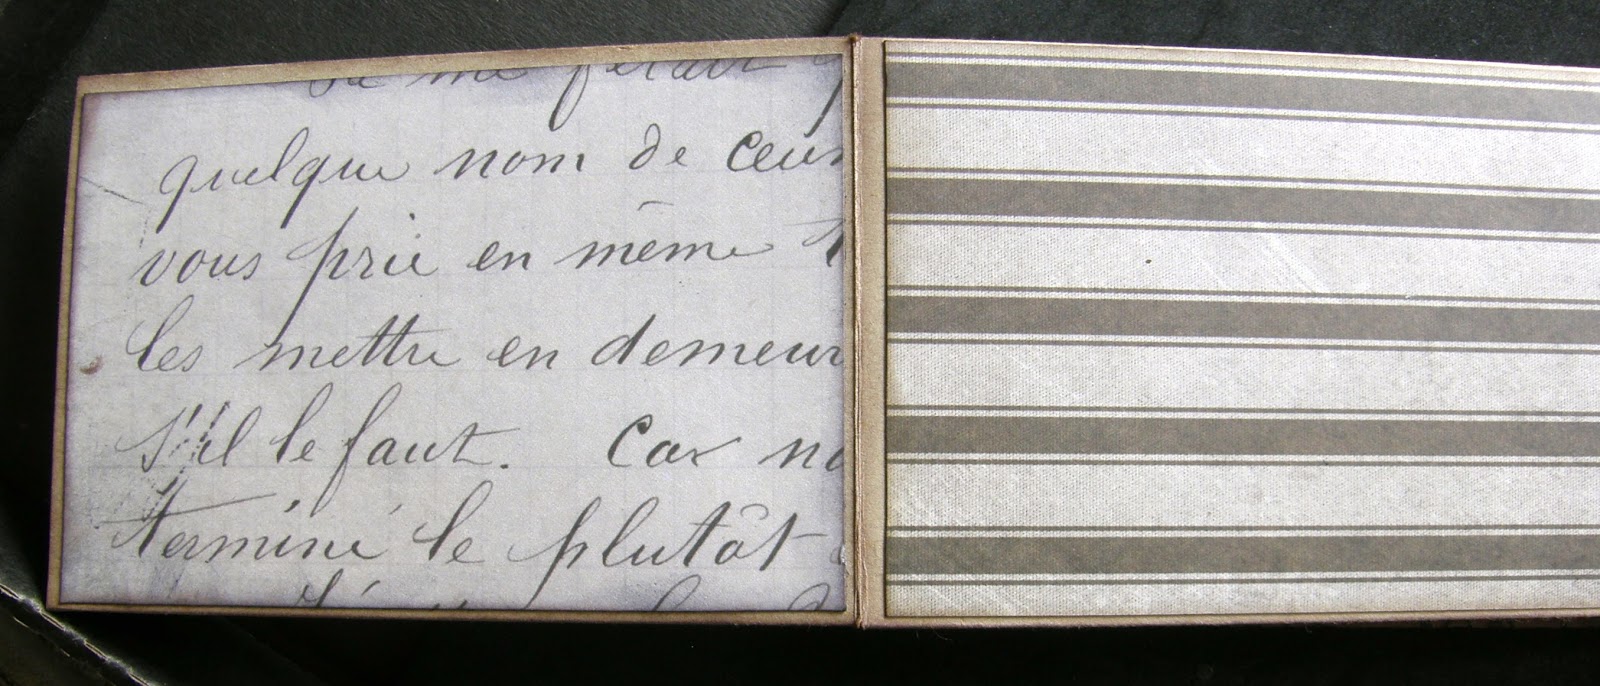 me ferait
quelque nom de ceux
vous prie en même
les mettre en demeur
s'il le faut. Car no
terminé le plutôt